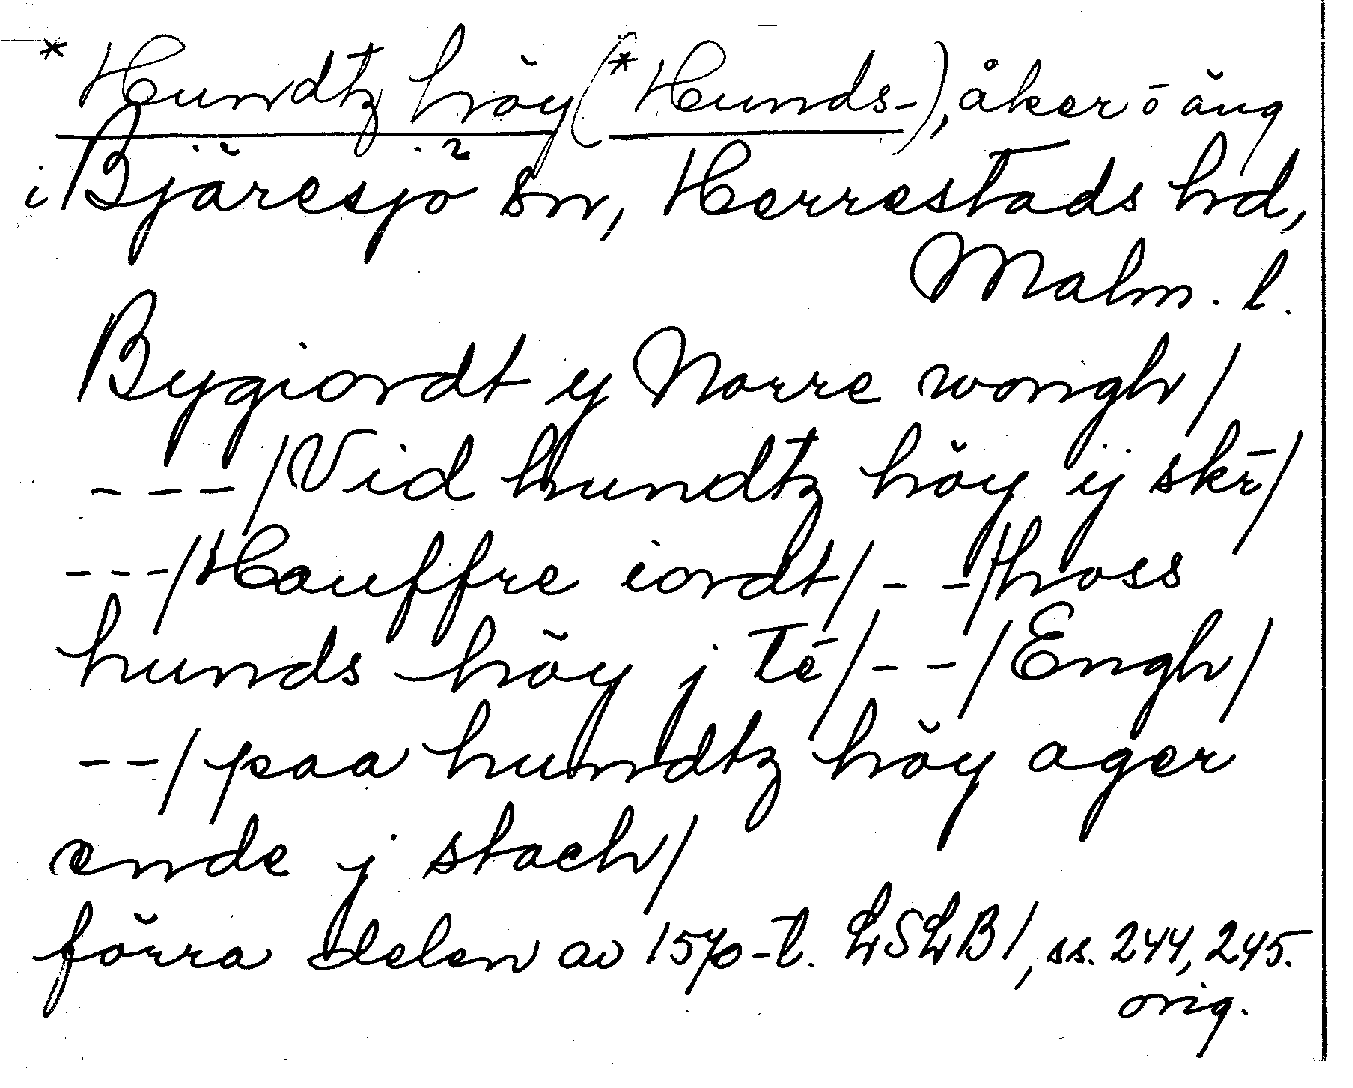 *Hundtz höy (*Hunds-), åker o äng
i Bjäresjö sn, Herrestads hd,
Malm. l.
Bygiordt y Norre wongh/
---/Vid hundtz höy ij skr̄/
---/Hauffre iordt/--/hoss
hunds höy j té/--/Engh/
--/paa hundtz höy ager
ende j stach/
förra delen av 1570-t. LSLB1, ss. 244, 245.
orig.